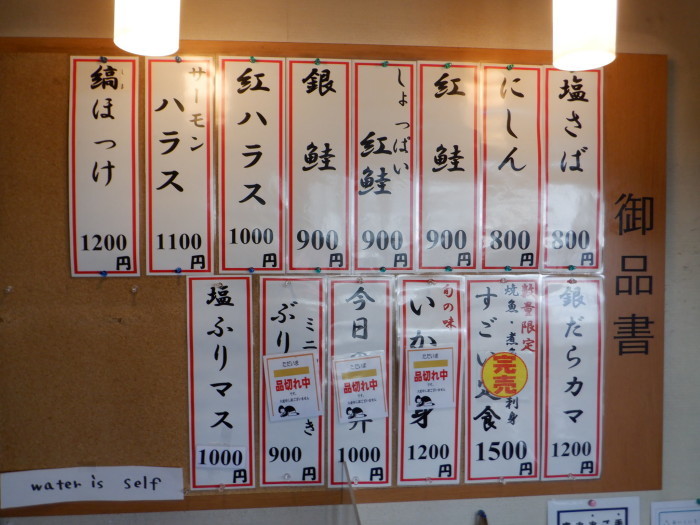 御品書
塩さば
800円
にしん
800円
紅鮭
900円
しょっぱい
紅鮭
900円
銀鮭
900円
紅ハラス
1000円
サーモン
ハラス
1100円
縞ほっけ
しま
1200円
銀だらカマ
1200円
数量限定
焼魚・煮
刺身
すごい定食
完売
1500円
旬の味
いか
身
ただいま
品切れ中
1200円
今日
丼
ただいま
品切れ中
1000円
ミニ
ぶり
き
ただいま
品切れ中
900円
塩ふりマス
1000円
water is self